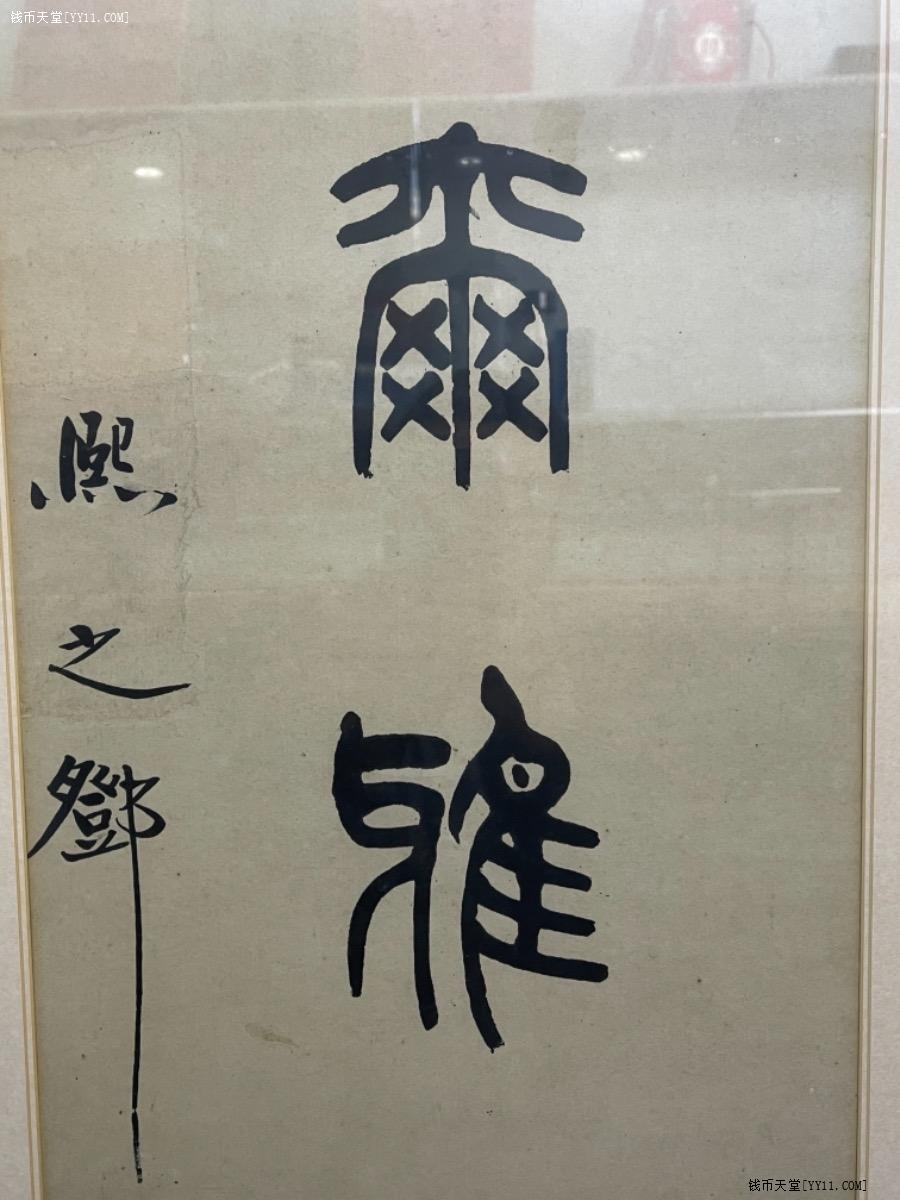 钱币天堂[YY11.COM]
爾雅
熙之鄧
钱币天堂[YY11.COM]